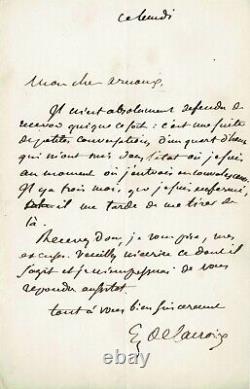 ce lundi
Mon cher arnoux,
Il m'est absolument défendu de
recevoir qui que ce soit : c'est une suite
de petites conversations, d'un quart d'heure
qui m'ont mis dans l'état où je suis
au moment où j'entrais en convalescence.
Il y a trois mois, que je suis enfermé,
il me tarde de me tirer de
là.
Recevez donc, je vous prie, mes
excuses. Veuillez m'écrire ce dont il
s'agit et je m'empresserai de vous
répondre aussitôt
tout à vous bien sincèrement
E. Delacroix